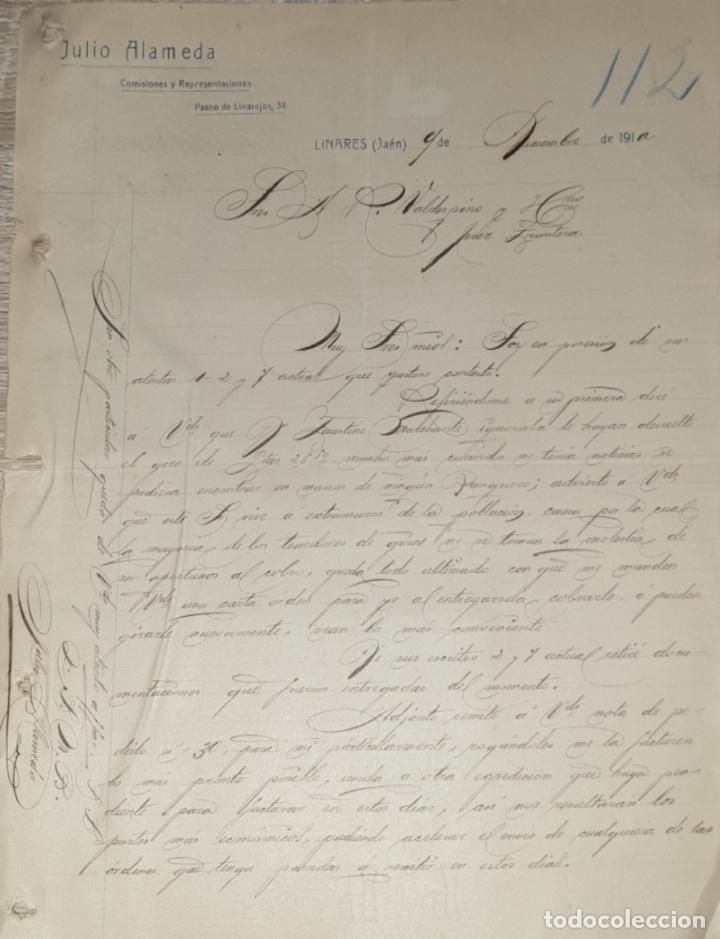 Julio Alameda
Comisiones y Representaciones
Paseo de Linarejos, 36
112
LINARES (Jaén) 9 de Diciembre de 1910
Sres A R. Valdespino y Hno
Jerez Frontera
Muy Sres mios: Soy en posesión de sus
atentas 1-2 y 7 actual que gustoso contesto.
Refiriéndome a su primera diré
á Vds que Dn Faustino ignoraba le hayan devuelto
el giro de Ptas mucho mas cuando no tenia noticias se
pudiera encontrar en manos de ningún Banquero; advierto a Vds
que este Sr vive á extramuros de la población, causa por la cual
la mayoria de los tenedores de giros no se toman la molestia de
ser oportunos al cobro, queda todo ultimado con que me manden
Vds una carta orden para yo al entregarsela, cobrarlo, ó pueden
girarle nuevamente, sean lo más conveniente
De sus escritos 2 y 7 actual retiré docu-
mentaciones que fueron entregadas del momento.
Adjunto remito á Vds nota de pe-
dido nº 30, para mi particularmente, rogándoles me la facturen
lo mas pronto posible, unida a otra expedición que haya pen-
diente para facturar en estos dias, asi nos resultarán los
portes más económicos, pudiendo acelerar el envio de cualquiera de las
órdenes que tenga pasadas á remitir en estos dias.
Sin otro particular quedo de Vds muy atento affmo S. S.
Q. B. S. M.
Julio Alameda
todocoleccion
todocoleccion.net